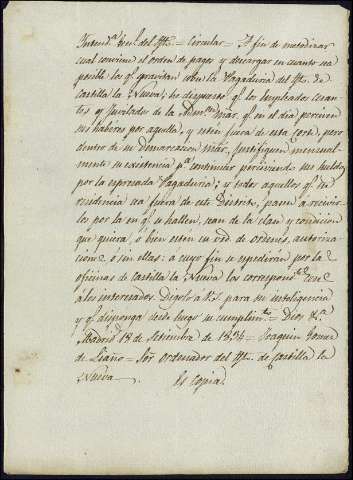 Intend.ª Gen.l del Ex.to = Circular = A fin de metodizar
cual conviene el orden de pagos y descargar en cuanto sea
posible los q.e gravitan sobre la Pagaduría del Ex.to de
Castilla la Nueva; he dispuesto q.e los empleados cesan-
tes y jubilados de la Admon mar. q.e en el día perciven
sus haberes por aquella, y estén fuera de esta corte, pero
dentro de su demarcacion mar, justifiquen mensual-
mente su existencia p.ª continuar perciviendo sus sueldos
por la espresada Pagaduría; y todos aquellos q.e su
residencia sea fuera de este Distrito, pasen a recivir-
los por la en q.e se hallen, sean de la clase y condicion
que quiera, ó bien estén en vtd de ordenes, autoriza-
cion.s ó sin ellas: a cuyo fin se espedirán por las
oficinas de Castilla la Nueva los correspond.tes ceses
a los interesados. Digolo a V.S. para su inteligencia
y q.e disponga desde luego su cumplim.to = Dios &.ª
Madrid 18 de Setiembre de 1834 = Joaquin
de Liaño = Sor Ordenador del Ex.to de Castilla la
Nueva
Es Copia